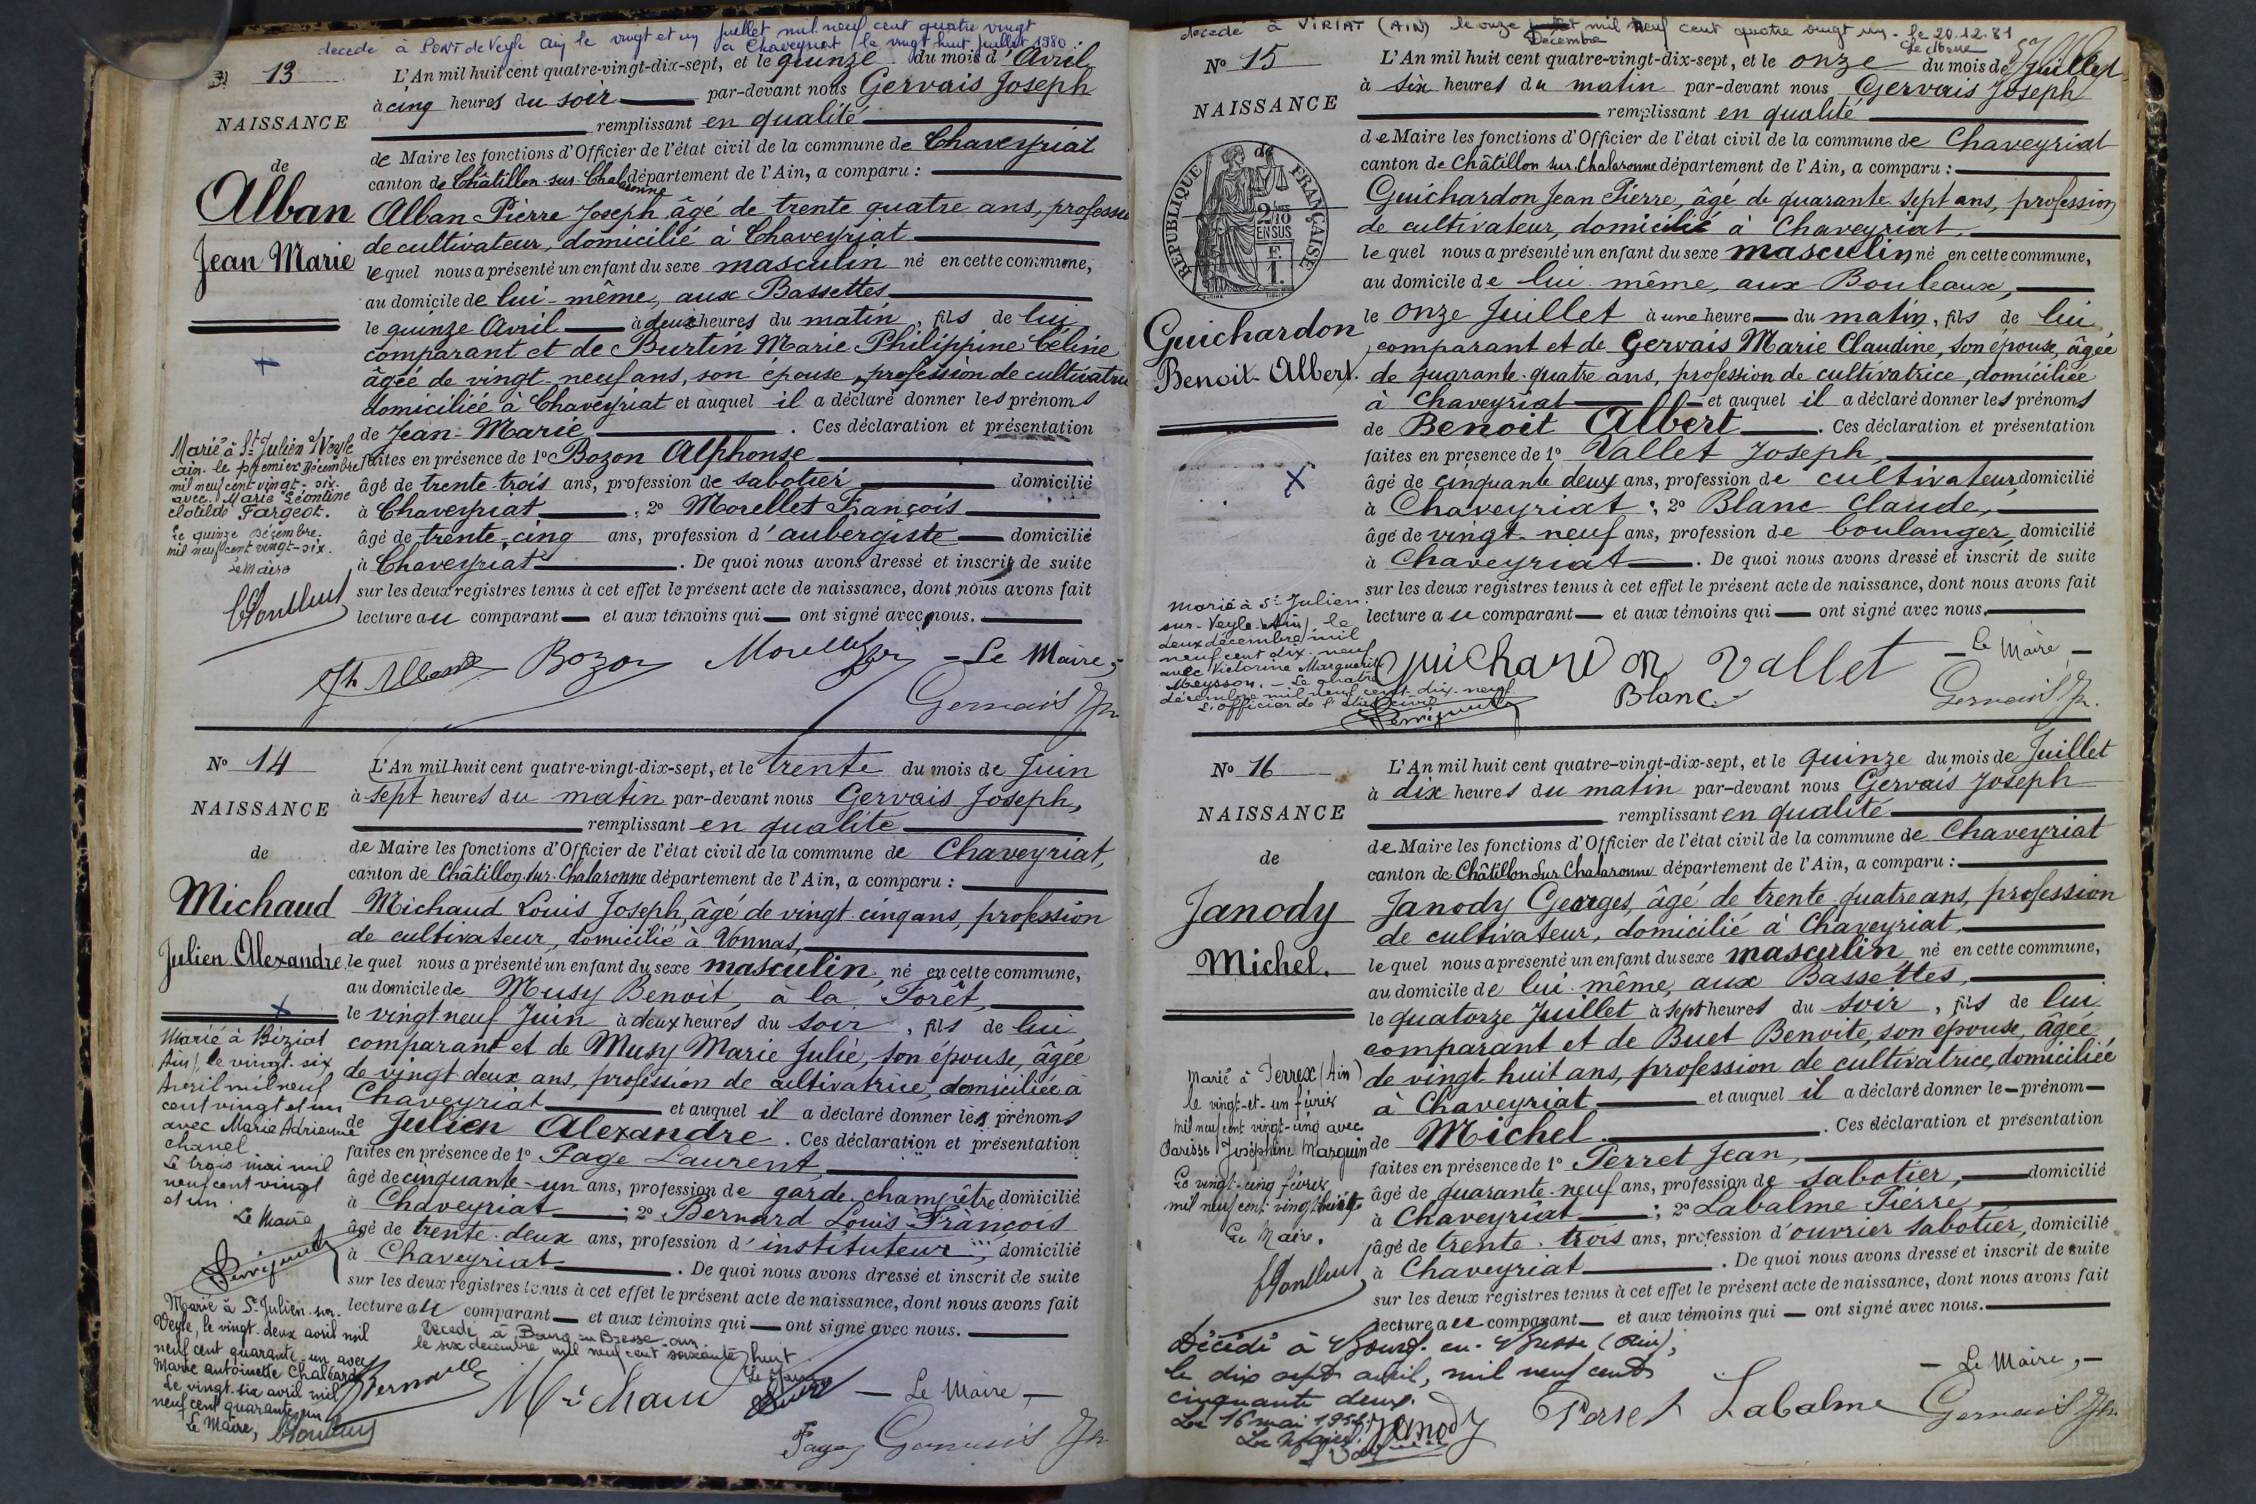 decedé à PONT de Veyle Ain le vingt et un juillet mil neuf cent quatre vingt
a Chaveyriat le vingt huit juillet 1980
13
NAISSANCE
de
Alban
Jean Marie
L'An mil huit cent quatre-vingt-dix-sept, et le quinze du mois d'Avril
à cinq heures du soir par-devant nous Gervais Joseph
remplissant en qualité
de Maire les fonctions d'Officier de l'état civil de la commune de Chaveyriat
canton de Châtillon-sur-Chalaronne département de l'Ain, a comparu :
Alban Pierre Joseph, âgé de trente quatre ans, professi
de cultivateur, domicilié à Chaveyriat
lequel nous a présenté un enfant du sexe masculin né en cette commune,
au domicile de lui-même, aux Bassettes
le quinze Avril à deux heures du matin, fils de lui
comparant et de Burtin Marie Philippine Céline
âgée de vingt-neuf ans, son épouse, profession de cultivatri
domiciliée à Chaveyriat et auquel il a déclaré donner les prénoms
de Jean-Marie . Ces déclaration et présentation
faites en présence de 1º Bozon Alphonse
âgé de trente-trois ans, profession de sabotier domicilié
à Chaveyriat ; 2º Morellet François
âgé de trente-cinq ans, profession d'aubergiste domicilié
à Chaveyriat . De quoi nous avons dressé et inscrit de suite
sur les deux registres tenus à cet effet le présent acte de naissance, dont nous avons fait
lecture au comparant et aux témoins qui ont signé avec nous.
Marié à St Julien s/Veyle
Ain. le premier Décembre
mil neuf cent vingt-six.
avec. Marie Léontine
Clotilde Fargeot.
Le quinze Décembre.
mil neuf cent vingt-six.
Le Maire
Jh Alban Bozon Morellet - Le Maire,
Gervais Jh
Nº 14
NAISSANCE
de
Michaud
Julien Alexandre
L'An mil huit cent quatre-vingt-dix-sept, et le trente du mois de Juin
à sept heures du matin par-devant nous Gervais Joseph,
remplissant en qualité
de Maire les fonctions d'Officier de l'état civil de la commune de Chaveyriat,
canton de Châtillon-sur-Chalaronne département de l'Ain, a comparu :
Michaud Louis Joseph, âgé de vingt cinq ans, profession
de cultivateur, domicilié à Vonnas,
lequel nous a présenté un enfant du sexe masculin, né en cette commune,
au domicile de Musy Benoit, à la Forêt,
le vingt neuf Juin à deux heures du soir, fils de lui
comparant et de Musy Marie Julie, son épouse, âgée
de vingt deux ans, profession de cultivatrice, domiciliée à
Chaveyriat et auquel il a déclaré donner les prénoms
de Julien Alexandre. Ces déclaration et présentation
faites en présence de 1º Fage Laurent
âgé de cinquante-un ans, profession de garde-champêtre domicilié
à Chaveyriat ; 2º Bernard Louis François
âgé de trente-deux ans, profession d'instituteur, domicilié
à Chaveyriat . De quoi nous avons dressé et inscrit de suite
sur les deux registres tenus à cet effet le présent acte de naissance, dont nous avons fait
lecture au comparant et aux témoins qui ont signé avec nous.
Marié à Biziat
Ain), le vingt-six
Avril mil neuf
cent vingt et un
avec Marie Adrienne
Chanel
Le trois mai mil
neuf cent vingt
et un.
Le Maire
Marié à St Julien-sur-
Veyle, le vingt-deux avril mil
neuf cent quarante-un avec
Marie Antoinette Chaléard
Le vingt-six avril mil
neuf cent quarante un
Le Maire,
Decedé à Bourg en Bresse
le six decembre mil neuf cent soixante huit
Le Maire
Bernard Michaud - Le Maire, -
Fage Gervais Jh
decedé à VIRIAT (AIN) le onze Decembre mil neuf cent quatre vingt un - le 20.12.81
Le Maire
Nº 15
NAISSANCE
de
RÉPUBLIQUE FRANÇAISE
2/10 EN SUS
F. 1.
Guichardon
Benoit-Albert.
L'An mil huit cent quatre-vingt-dix-sept, et le onze du mois de Juillet
à six heures du matin par-devant nous Gervais Joseph
remplissant en qualité
de Maire les fonctions d'Officier de l'état civil de la commune de Chaveyriat
canton de Châtillon sur Chalaronne département de l'Ain, a comparu :
Guichardon Jean Pierre, âgé de quarante-sept ans, profession
de cultivateur, domicilié à Chaveyriat,
lequel nous a présenté un enfant du sexe masculin, né en cette commune,
au domicile de lui-même, aux Bouleaux,
le onze Juillet à une heure du matin, fils de lui
comparant et de Gervais Marie Claudine, son épouse, âgée
de quarante-quatre ans, profession de cultivatrice, domiciliée
à Chaveyriat et auquel il a déclaré donner les prénoms
de Benoit Albert . Ces déclaration et présentation
faites en présence de 1º Vallet Joseph,
âgé de cinquante deux ans, profession de cultivateur domicilié
à Chaveyriat ; 2º Blanc Claude,
âgé de vingt-neuf ans, profession de boulanger, domicilié
à Chaveyriat . De quoi nous avons dressé et inscrit de suite
sur les deux registres tenus à cet effet le présent acte de naissance, dont nous avons fait
lecture au comparant et aux témoins qui ont signé avec nous.
Marié à St Julien-
sur-Veyle (Ain), le
deux décembre mil
neuf cent dix-neuf
avec Victorine Marguerite
Meysson. - Le quatre
décembre mil neuf cent-dix-neuf
L'officier de l'état civil
Guichardon Vallet - Le Maire, -
Blanc Gervais Jh.
Nº 16
NAISSANCE
de
Janody
Michel.
L'An mil huit cent quatre-vingt-dix-sept, et le quinze du mois de Juillet
à dix heures du matin par-devant nous Gervais Joseph
remplissant en qualité
de Maire les fonctions d'Officier de l'état civil de la commune de Chaveyriat
canton de Châtillon sur Chalaronne département de l'Ain, a comparu :
Janody Georges, âgé de trente-quatre ans, profession
de cultivateur, domicilié à Chaveyriat,
lequel nous a présenté un enfant du sexe masculin né en cette commune,
au domicile de lui-même, aux Bassettes,
le quatorze Juillet à sept heures du soir, fils de lui
comparant et de Buet Benoite, son épouse, âgée
de vingt huit ans, profession de cultivatrice, domiciliée
à Chaveyriat et auquel il a déclaré donner le prénom
de Michel. . Ces déclaration et présentation
faites en présence de 1º Perret Jean,
âgé de quarante-neuf ans, profession de sabotier, domicilié
à Chaveyriat ; 2º Labalme Pierre
âgé de trente-trois ans, profession d'ouvrier sabotier, domicilié
à Chaveyriat . De quoi nous avons dressé et inscrit de suite
sur les deux registres tenus à cet effet le présent acte de naissance, dont nous avons fait
lecture au comparant et aux témoins qui ont signé avec nous.
Marié à Perrex (Ain)
le vingt-et-un février
mil neuf cent vingt-cinq avec
Joséphine Marguin
Le vingt-cinq février
mil neuf cent vingt
Le Maire.
Décédé à Bourg-en-Bresse (Ain),
le dix sept avril, mil neuf cent
cinquante deux.
Le 16 mai 1952.
Le Maire.
Janody Perret Labalme - Le Maire, -
Gervais Jh.